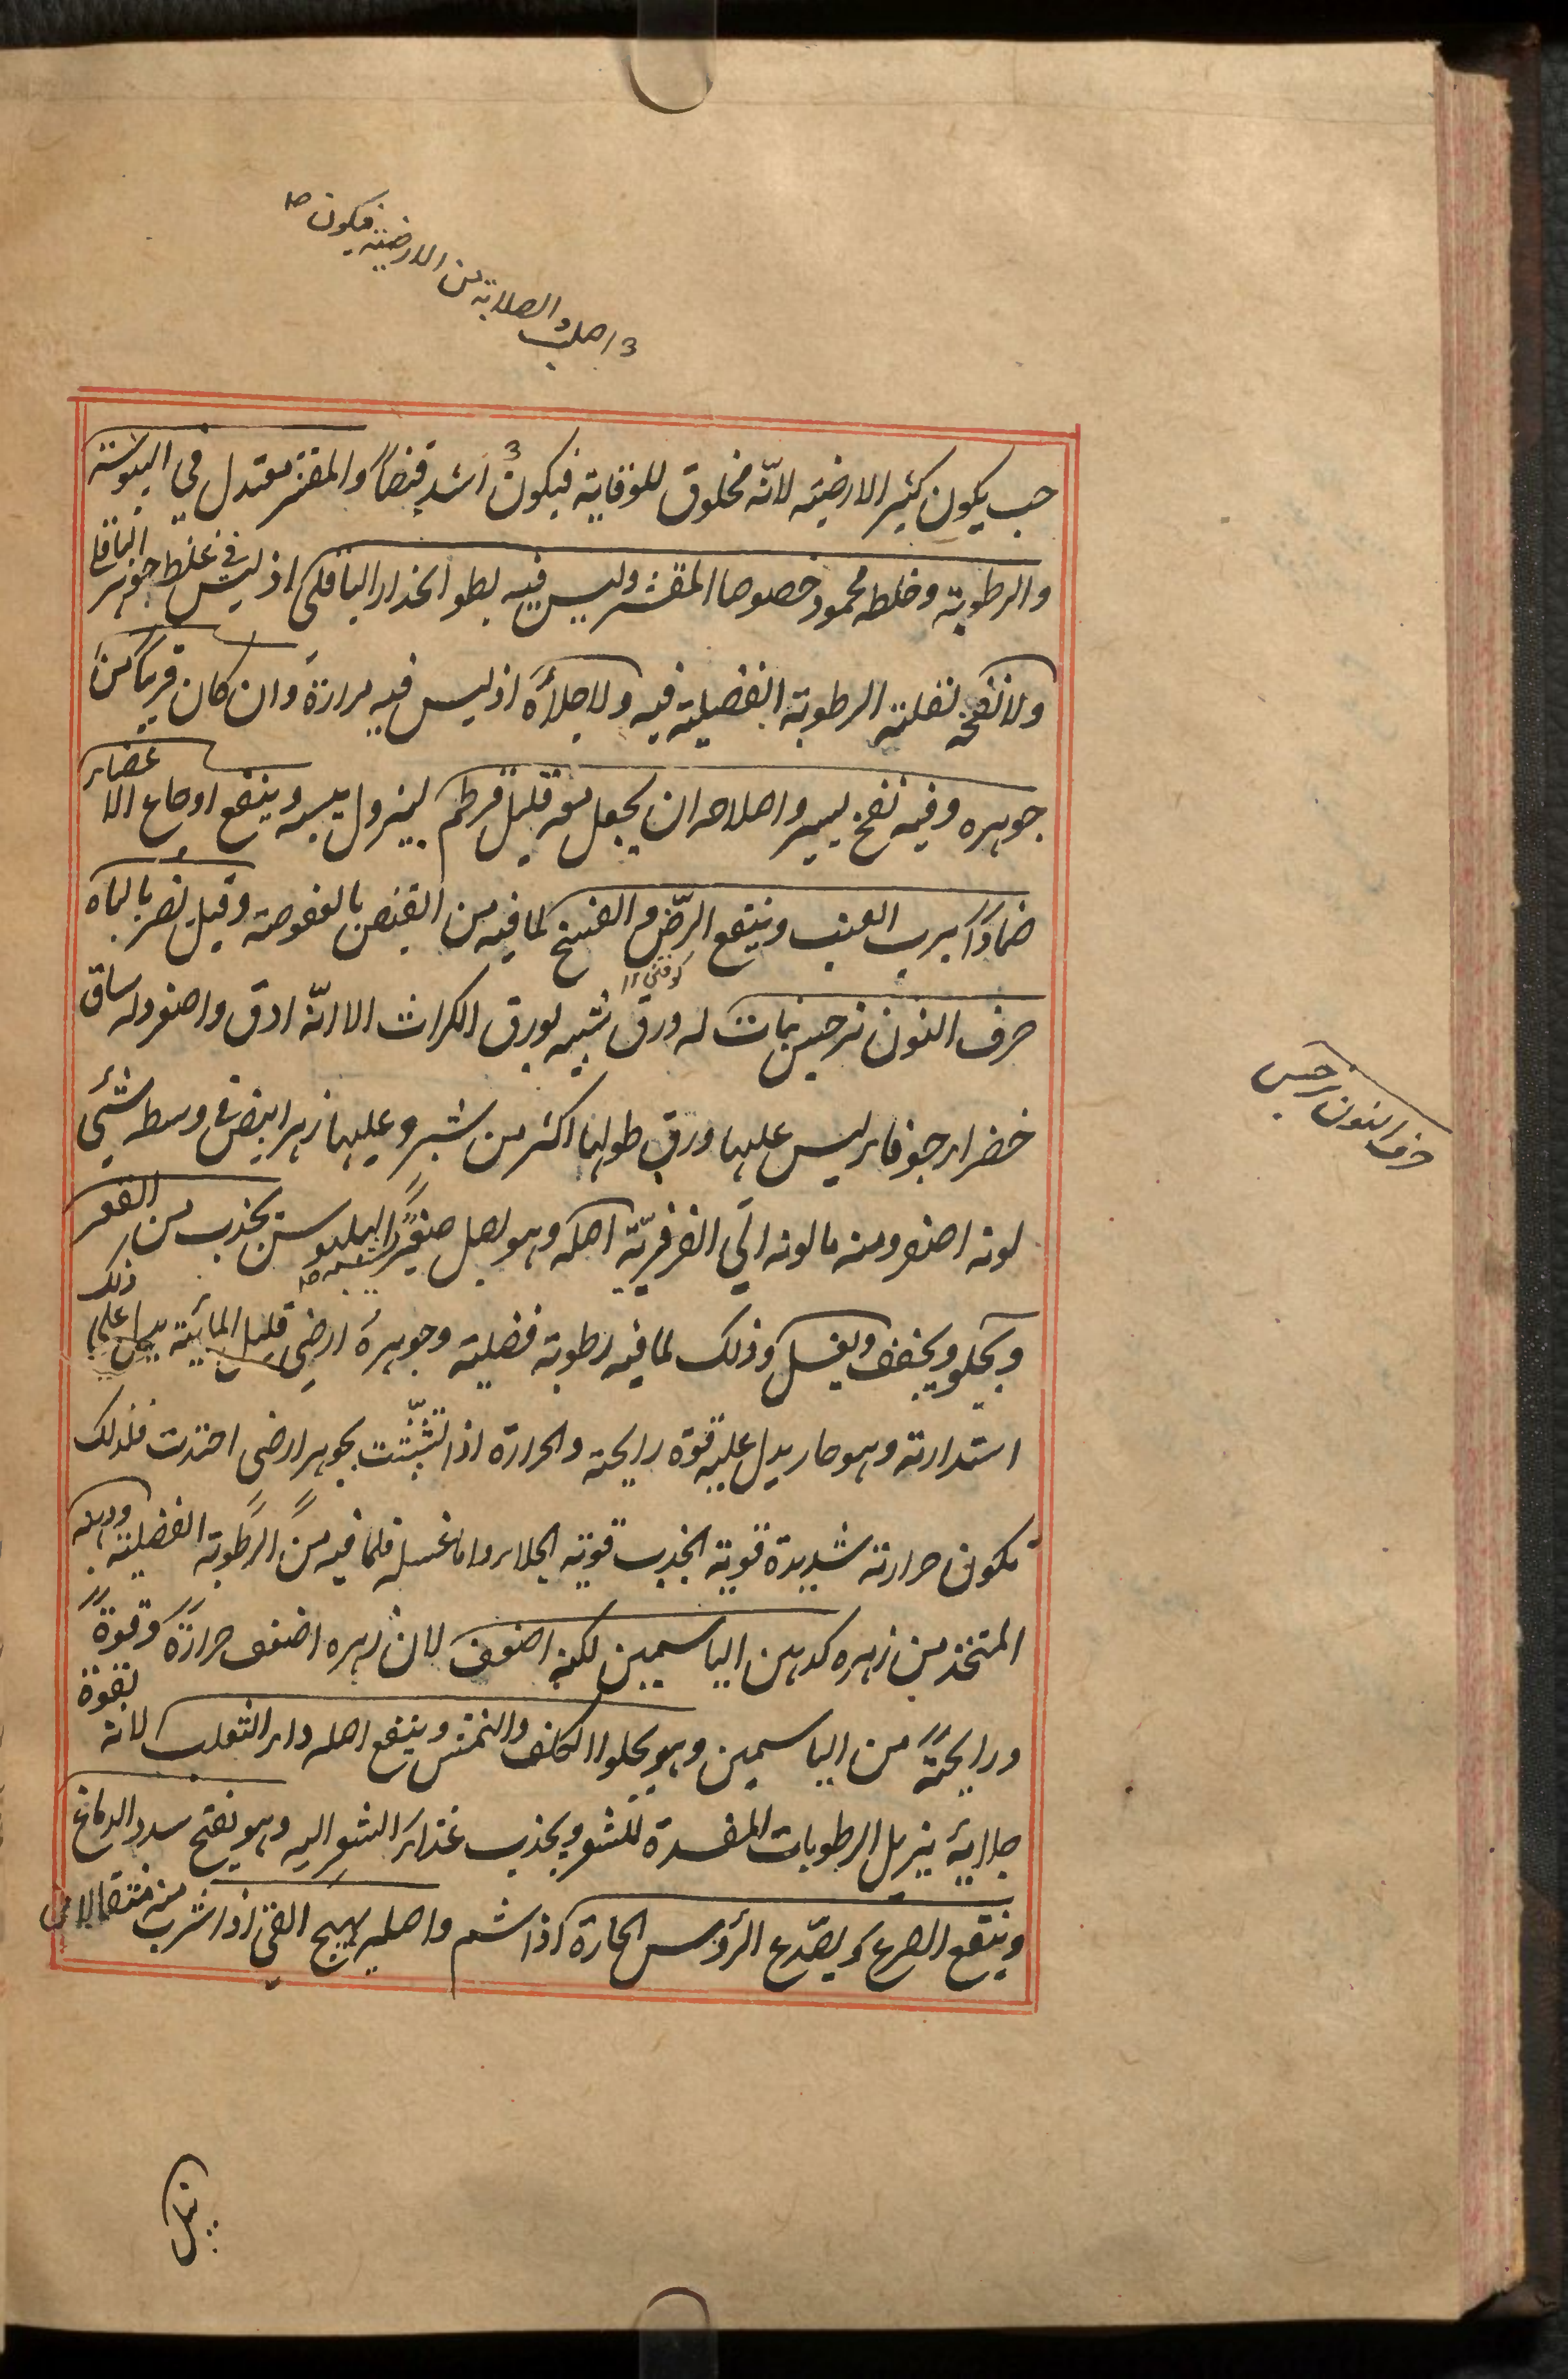 اصلب والصلابة من الارضية فيكون صح
حب يكون كثير الارضية لانّه مخلوق للوقاية فيكون اشد قبضاً والمقشر معتدل في اليبوسة
والرطوبة وخلطه محمود خصوصا المقشر وليس فيه بطو انحدار الباقلى اذ ليس في غلظ جوهر الباقلا
ولا نفخه لقلة الرطوبة الفضلية فيه ولا جلاؤه اذ ليس فيه مرارة وان كان قريباً من
جوهره وفيه نفخ يسير واصلاحه ان يجعل معه قليل قرطم ليزول يبسه وينفع اوجاع الاعضاء
ضماداً برب العنب وينفع الرّض والفسخ لما فيه من القبض بالعفوصة وقيل يضر بالباه
كوفتگى
حرف النون نرجس نبات له ورق شبيه بورق الكراث الا انّه ادق واصغر وله ساق
حرف النون نرجس
خضراء جوفاء ليس عليها ورق طولها اكثر من شبر وعليها زهر ابيض فى وسطه شئى
لونه اصفر ومنه ما لونه الى الفرفريّة اصله وهو بصل صغير البلبوس يجذب من القعر
ويجلو ويجفف ويغسل وذلك لما فيه رطوبة فضلية وجوهره ارضى قليل المائية يدل على ذلك
استدارته وهو حار يدل عليه قوة رايحته والحرارة اذا تشبّثت بجوهر ارضى احتدت فلذلك
تكون حرارته شديدة قوية الجذب قوية الجلاء واما غسله فلما فيه من الرطوبة الفضلية ودهنه
المتخذ من زهره كدهن الياسمين لكنه اضعف لان زهره اضعف حرارةً وقوةً
ورايحةً من الياسمين وهو يجلوا الكلف والنمش وينفع اصله داء الثعلب لانه بقوة
جلاية يزيل الرطوبات المفسدة للشعر ويجذب غذاء الشعر اليه وهو يفتح سدد الدماغ
وينفع الصرع ويصدّع الرؤس الحارة اذا شم واصله يهيج القئ اذا شرب منه مثقالا من